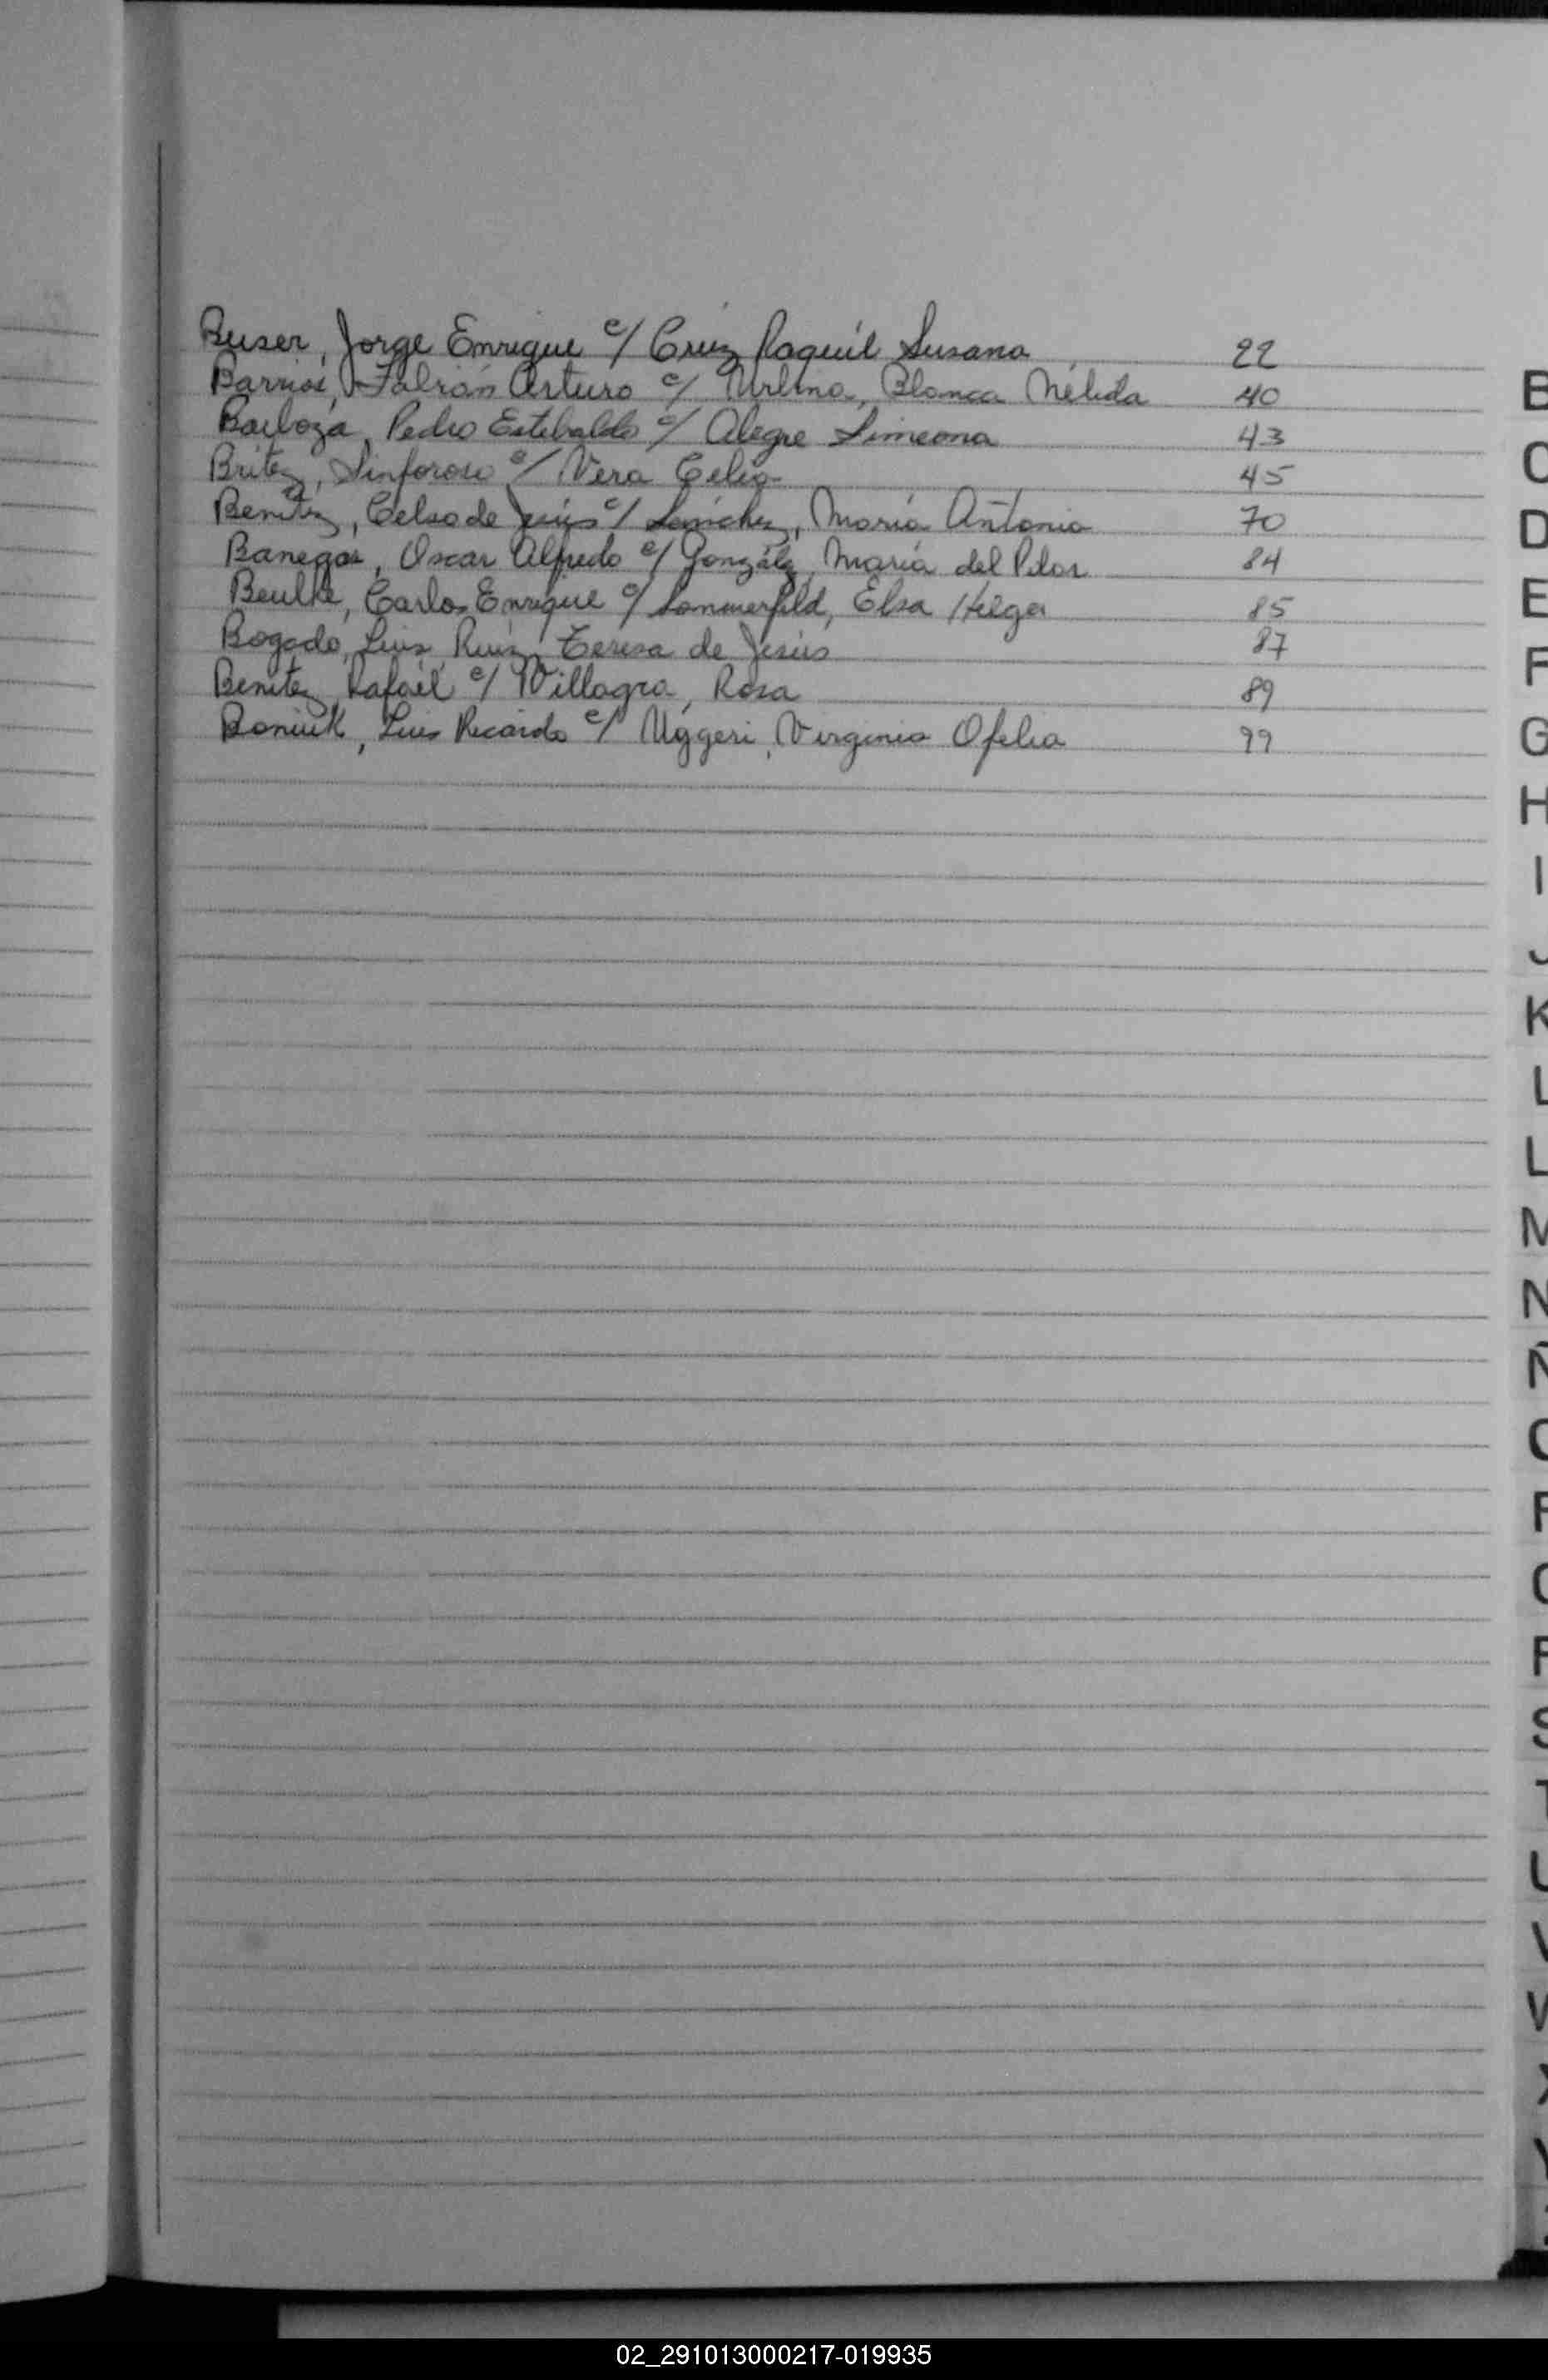 Buser, Jorge Enrique c/ Cruz Raquel Susana 22
Barrios, Fabián Arturo c/ Urbina, Blanca Nélida 40
Barboza, Pedro Estebaldo c/ Alegre Simeona 43
Britez, Sinforoso c/ Vera Celia 45
Benítez, Celso de Jesús c/ Sánchez, María Antonia 70
Banegas, Oscar Alfredo c/ González, María del Pilar 84
Beulke, Carlos Enrique c/ Sommerfeld, Elsa Helga 85
Bogado, Luis, Ruiz, Teresa de Jesús 87
Benítez, Rafael c/ Villagra, Rosa 89
Boniuk, Luis Ricardo c/ Uggeri, Virginia Ofelia 99
B
C
D
E
F
G
H
I
J
K
L
L
M
N
Ñ
O
P
Q
R
S
T
U
V
W
X
Y
02_291013000217-019935